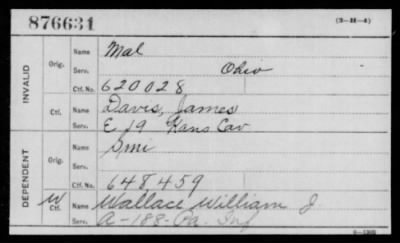 876631 (3-H-4)
INVALID Orig. Name Mal
Serv. Ohio
Ctf. No. 620028
Ctf. Name Davis, James
Serv. E 19 Kans Cav
DEPENDENT Orig. Name Smi
Serv.
Ctf. No. 648,459
W Ctf. Name Wallace William J
Serv. A-188-Pa. Inf